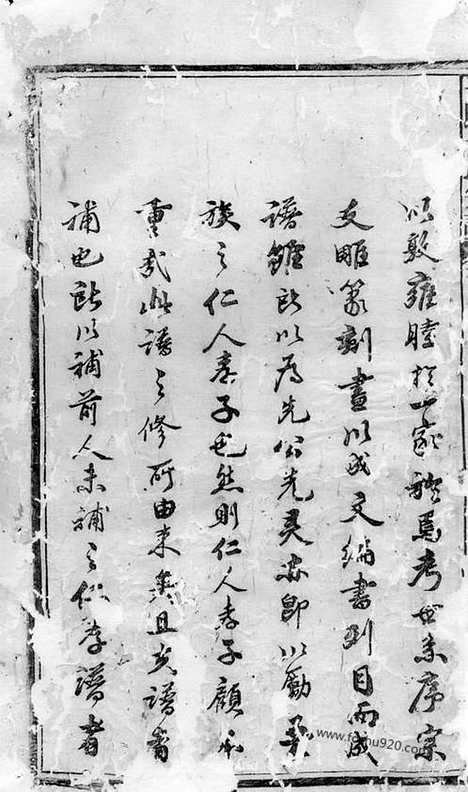 以敦雍睦於一家族焉考世系序宗
支雕篆劃畫以成文編書列目而成
譜雖所以爲先公先夫亦即以勵
族之仁人孝子也然則仁人孝子顧不
重哉此譜之修所由來矣且夫譜者
補也所以補前人未補之仁孝譜者
www.fechu920.com